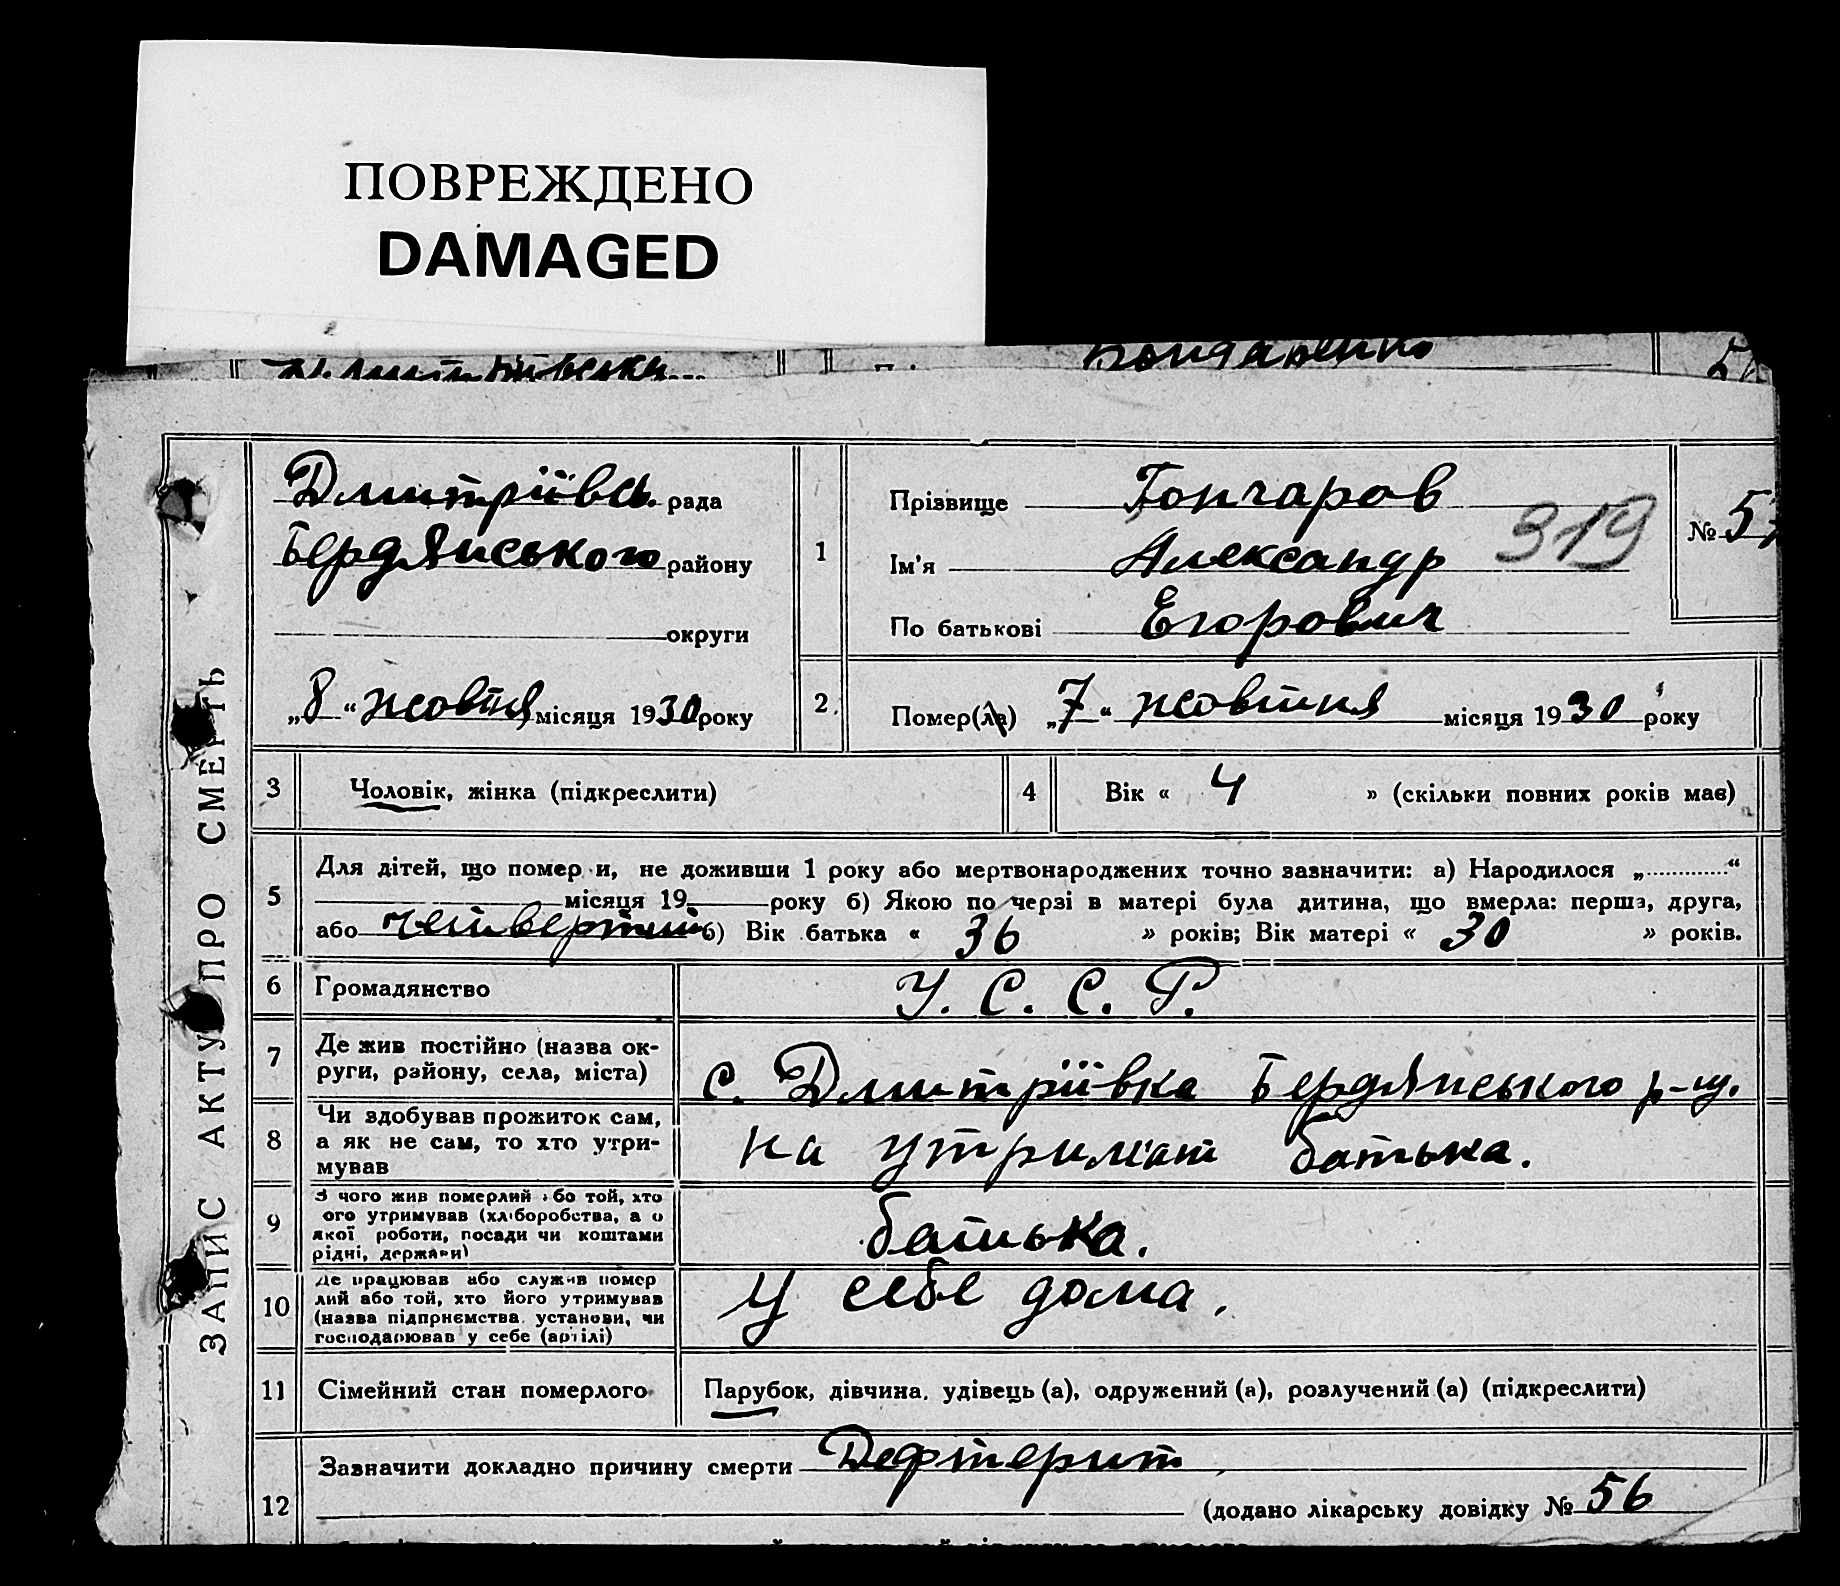 ПОВРЕЖДЕНО
DAMAGED
Бондаренко
ЗАПИС АКТУ ПРО СМЕРТЬ
Дмитріївсь. рада
Бердянського району
округи
„8“ жовтня місяця 1930 року
1
Прізвище Гончаров
Ім'я Александр
По батькові Егорович
319
№ 57
2
Помер(ла) „7“ жовтня місяця 1930 року
3 Чоловік, жінка (підкреслити)
4 Вік « 4 » (скільки повних років має)
5 Для дітей, що помер и, не доживши 1 року або мертвонароджених точно зазначити: а) Народилося „ “
місяця 19 року б) Якою по черзі в матері була дитина, що вмерла: перша, друга,
або четвертий б) Вік батька « 36 » років; Вік матері « 30 » років.
6 Громадянство У. С. С. Р.
7 Де жив постійно (назва ок-
руги, району, села, міста) с. Дмитріївка Бердянського р-ну.
8 Чи здобував прожиток сам,
а як не сам, то хто утри-
мував
на утриманї батька.
9 З чого жив померлий або той, хто
ого утримував (хліборобства, а о
якої роботи, посади чи коштами
рідні, держави)
батька.
10 Де працював або служив помер
лий або той, хто його утримував
(назва підприємства, установи, чи
господарював у себе (артілі)
У себе дома.
11 Сімейний стан померлого Парубок, дівчина, удівець (а), одружений (а), розлучений (а) (підкреслити)
12 Зазначити докладно причину смерти Дефтерит
(додано лікарську довідку № 56